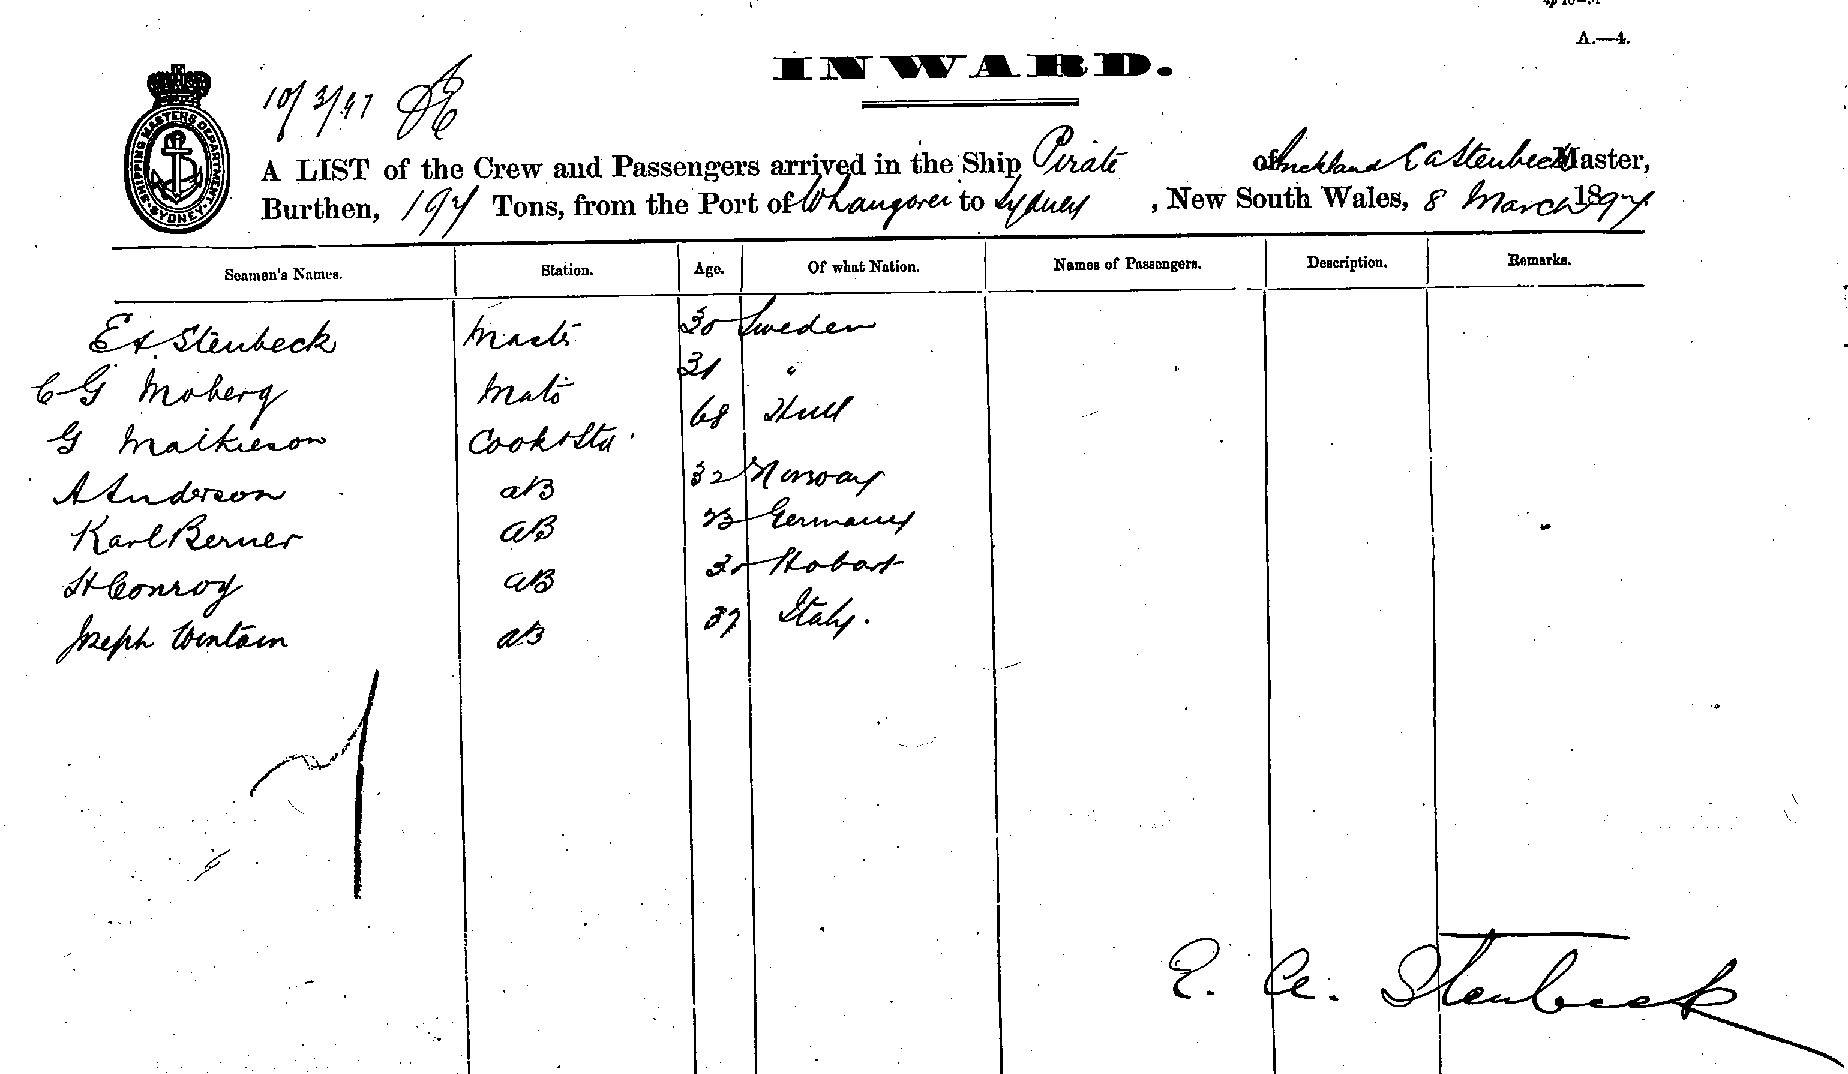 A.—4.
INWARD.
10/3/97
SHIPPING MASTERS DEPARTMENT SYDNEY
A LIST of the Crew and Passengers arrived in the Ship Pirate of Auckland E A Stenbeck Master,
Burthen, 197 Tons, from the Port of Whangarei to Sydney, New South Wales, 8 March 1897
Seamen's Names. Station. Age. Of what Nation. Names of Passengers. Description. Remarks.
E A. Stenbeck Master 30 Sweden
C G Moberg Mate 31 "
G Mathieson Cook & Std. 68 Hull
A Anderson AB 32 Norway
Karl Berner AB 23 Germany
H Conroy AB 30 Hobart
Joseph AB 37 Italy.
7
E. A. Stenbeck